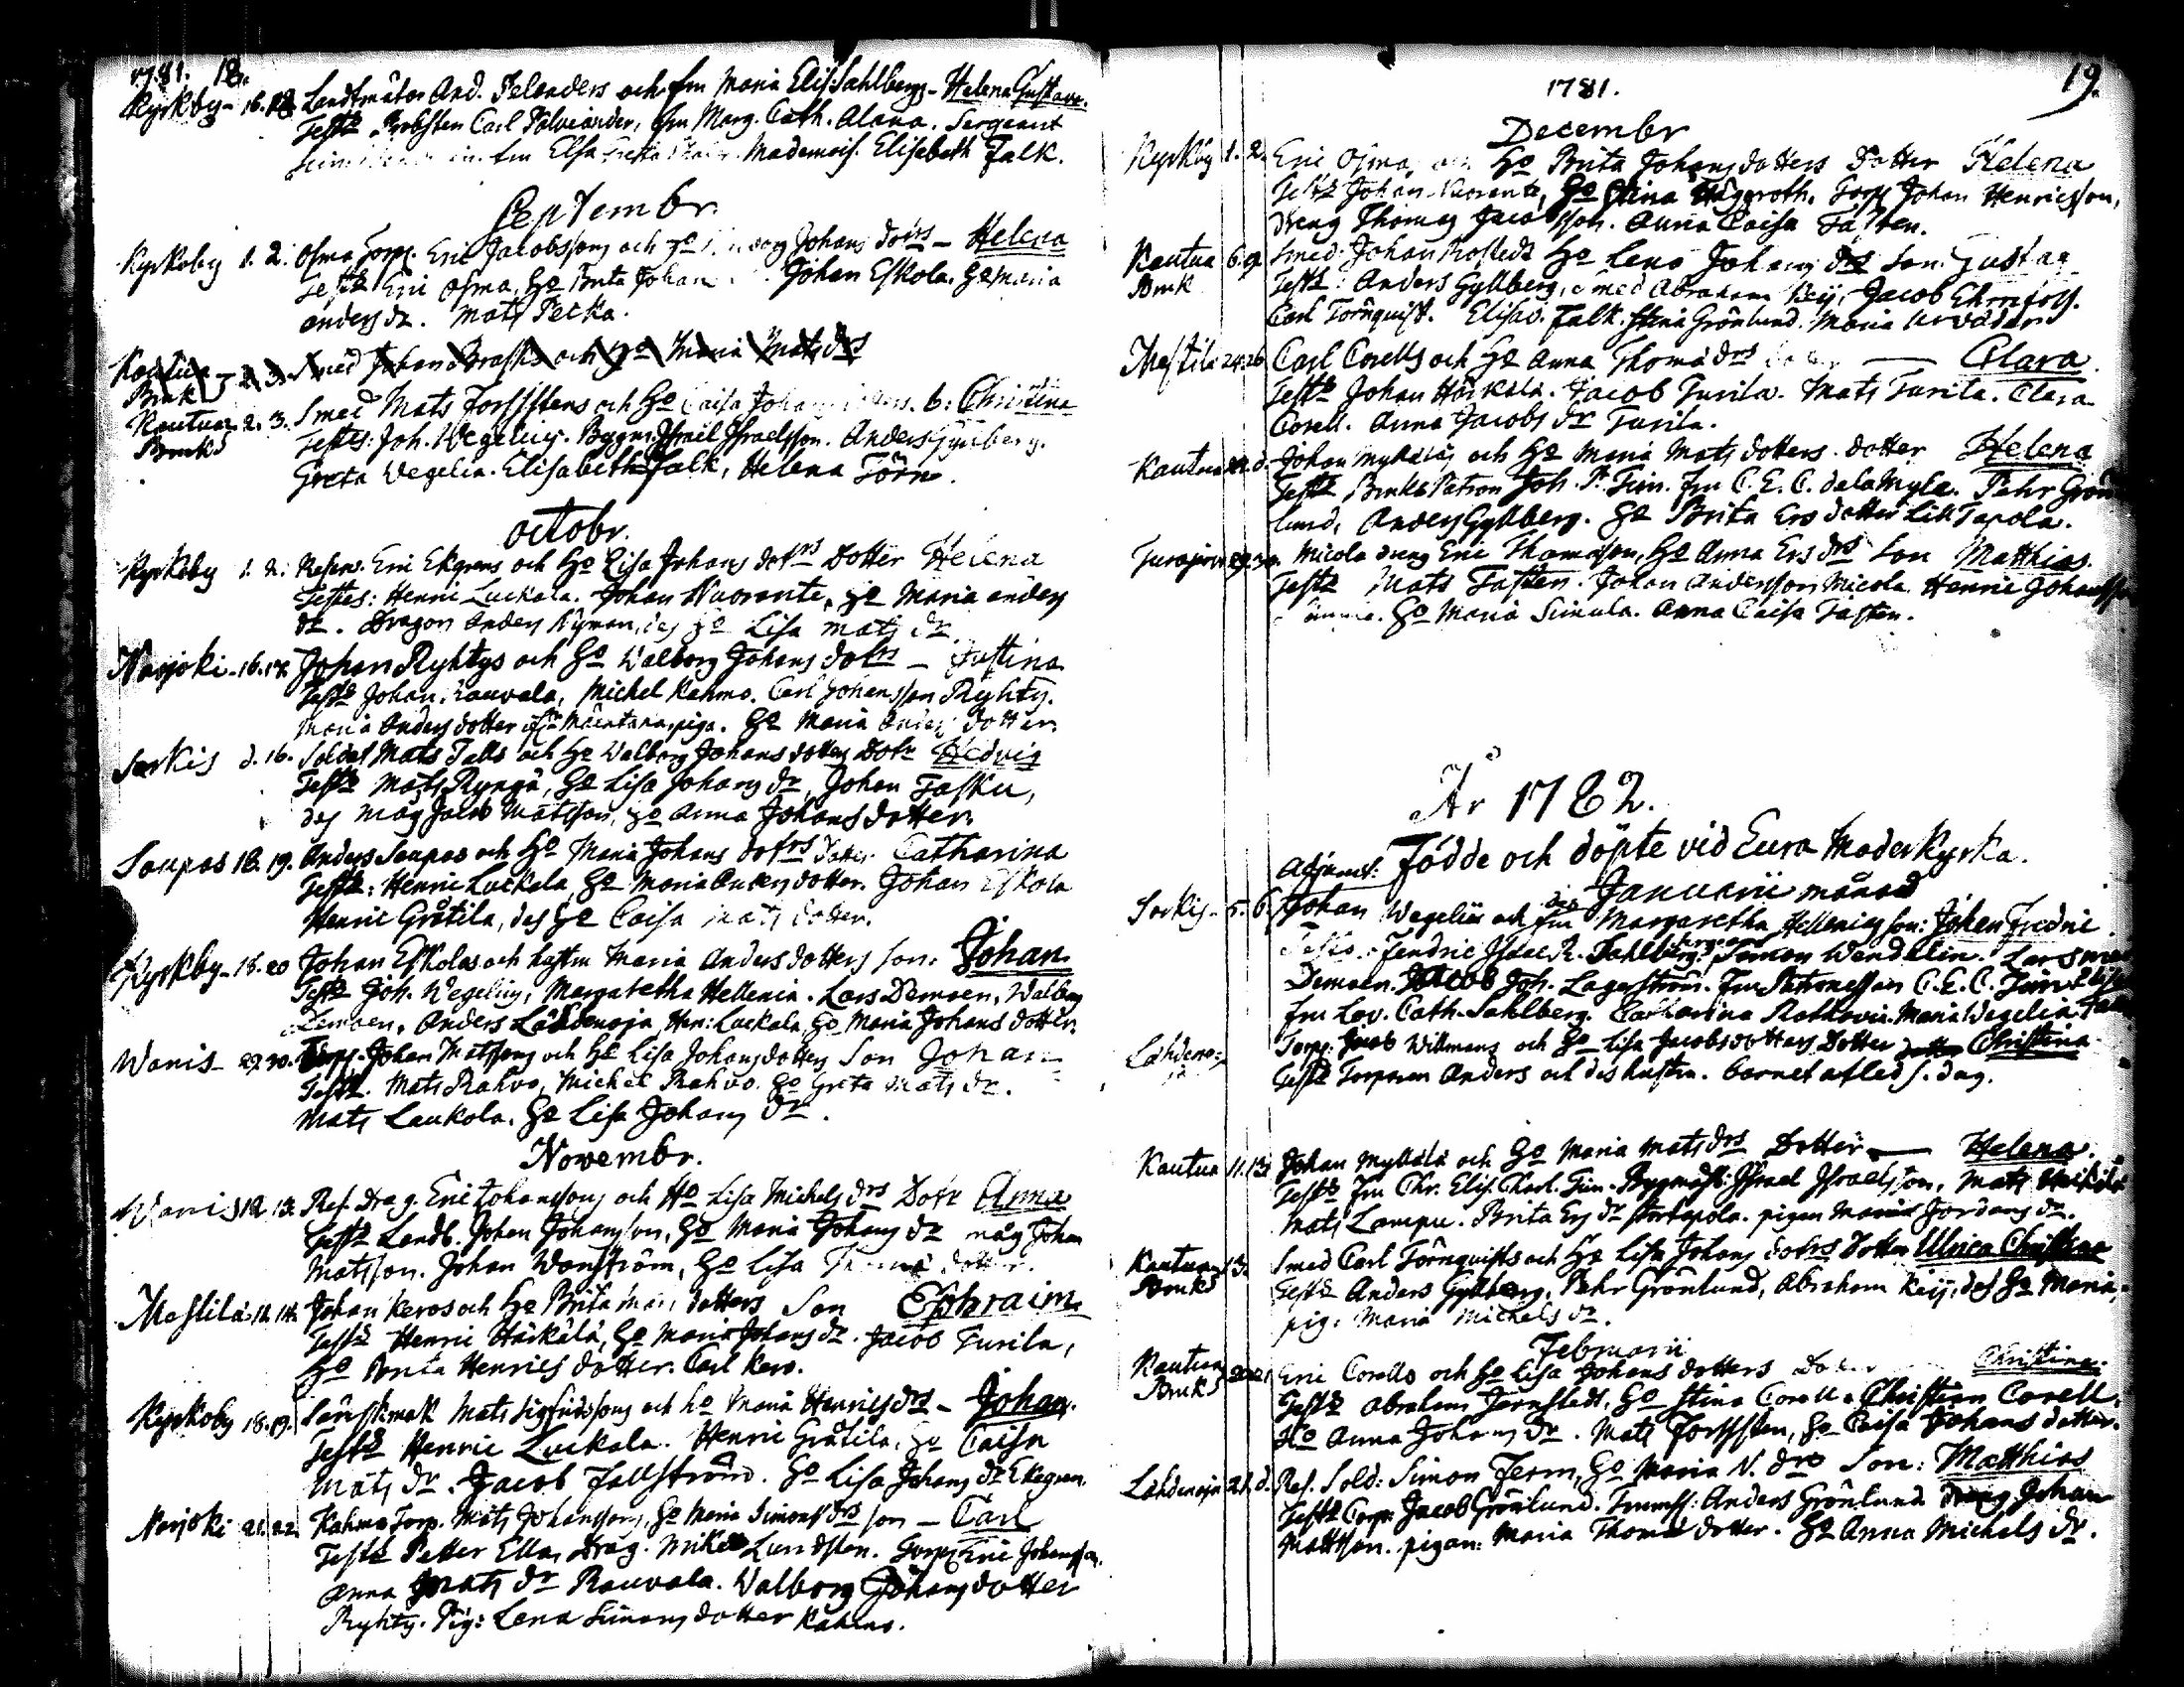 1781. 18.
Kyrkby 16. 18. Landtmätar And. Telanders och fru Maria Elis. Sahlbergs - Helena Gustava.
Test: Probsten Carl Polviander, fru Marg. Cath. Alana. Sergeant
fru Elsa Mademois. Elisabeth Falk.
Septembr.
Kyrkoby 1. 2. Osma Torp. Eric Jacobssons och Ho Johans dotrs - Helena
Test: Eric Osma, Ho Brita Johan Johan Eskola. Ho Maria
anders dr. Mats Pecka.
Kautua Bruk 2. 3. Smed Johan Brasks och Ho Maria Mats drs
Kautua Bruks 2. 3. Smed Mats Forsstens och Ho Caisa Johans b: Christina
Testes: Joh. Wegelius. Bygm. Israel Israelsson. Anders Gyllberg.
Greta Wegelia. Elisabeth Falk, Helena Törn.
octobr.
Kyrkoby 1. 2. Eric Ekgrens och Ho Lisa Johans dotrs Dotter Helena
Testes: Henric Luckala. Johan Nuorante, Ho Maria anders
dr. Dragon Anders Nyman, des Ho Lisa Mats dr.
Narjoki 16. 17. Johan Ryhtys och Ho Walborg Johans dotrs - Justina
Test: Johan Rauvala, Michel Kahmo. Carl Johansson Ryhty.
Maria Anders dotter piga. Ho Maria Anders dotter.
Sorkis d. 16. Soldat Mats Talls och Ho Walborg Johans dotters Dotr Hedvig
Test: Mats Ryngä, Ho Lisa Johans dr, Johan Tasku,
des måg Jacob Matsson, Ho Anna Johans dotter.
Saupas 18. 19. Anders Saupas och Ho Maria Johans dotrs dotter Catharina
Test: Henric Luckala Ho Maria Anders dotter. Johan Eskola
Henric Gråtila, des Ho Caisa Mats dotter.
Kyrkby 18. 20 Johan Eskolas och hustru Maria Anders dotters son: Johan
Test: Joh. Wegelius, Margaretha Hellenia. Lars Demoen, Walborg
Demoen, Anders Lähdenoja, Hen: Luckala, Ho Maria Johans dotter.
Wanis 29. 30. Torp. Johan Matssons och Ho Lisa Johans dotters Son Johan
Test: Mats Rahvo, Michel Rahvo. Ho Greta Mats dr.
Mats Laukola. Ho Lisa Johans dr.
Novembr.
Wanis 12. 13. Res. Drag. Eric Johanssons och Ho Lisa Michels drs Dotr Anna
Test: Landb. Johan Johansson, Ho Maria Johans dr måg Johan
Matsson. Johan Wanström, Ho Lisa Thomæ dotter.
Mestilä 12. 14. Johan Keros och Ho Brita Mats dotters Son Ephraim
Test: Henric Häikälä, Ho Maria Johans dr. Jacob Turila,
Ho Brita Henrics dotter. Carl Kero.
Kyrkoby 18. 19. Mats Sigfridssons och Ho Maria Henrics drs - Johan.
Test: Henric Luckala. Henric Gråtila, Ho Caisa
Mats dr. Jacob Fallström. Ho Lisa Johans dr Ekegren.
Narjoki 21. 22. Kahma Torp. Mats Johanssons, Ho Maria Simons drs son - Carl
Test: Petter Ella, Drag. Mickel Lundsten. Torp. Eric Johansson.
Anna Mats dr Rauvala. Walborg Johans dotter
Ryhty. Pig: Lena Simons dotter Kahma.
19.
1781.
Decembr
Kyrkby 1. 2. Eric Osma och Ho Brita Johans dotters dotter Helena
Test: Johan Nuorante, Ho Stina Häggroth. Torp. Johan Henricsson,
dreng Thomas Jacobsson. Anna Caisa Fasten.
Kautua Bruk 6. 9. Smed Johan Rostedt Ho Lena Johans drs Son. Gustav
Test: Anders Gyllberg, smed Abraham Keij, Jacob Ehrnfors.
Carl Törnquist. Elisab. Falk. Stina Grönlund. Maria
Mestilä 24. 26. Carl Corells och Ho Anna Thomæ drs dotter - Clara.
Test: Johan Häikälä. Jacob Turila. Mats Turila. Clara
Corell. Anna Jacobs dr Turila.
Kautua d. Johan Mylläläs och Ho Maria Mats dotters. dotter Helena
Test: Bruks Patron Joh. P. Timm. fru C. E. C. de la Myle. Pehr Grön
lund, Anders Gyllberg. Ho Brita Ers dotter Lill Tapola.
Turajärvi 29. 30. Micola dreng Eric Thomasson, Ho Anna Ers drs Son Matthias.
Test: Mats Fasten. Johan Andersson Micola. Henric Johansson
Ho Maria Simula. Anna Caisa Fasten.
År 1782.
Födde och döpte vid Eura Moderkyrka.
Januarii månad
Sorkis 5. 6. Johan Wegelii och fru Margaretha Hellenius son: Johan Fredric.
Test: Fendric Isaac R. Sahlberg. Simon Wendelin. Lars
Demoen. Jacob Joh. Lagerström. fru Patronessan C. E. C. Timm
fru Lov. Cath. Sahlberg. Catharina Rothovia. Maria Wegelia.
Lähdenoja Torp. Jacob Willmans och Ho Lisa Jacobs dotters Dotter Christina
Test: Torparen Anders och des hustru. barnet afled s. dag.
Kautua 11. 13. Johan Myllälä och Ho Maria Mats drs Dotter - Helena.
Test: fru Chr. Elis. Charl. Timm. Bygmäst: Israel Israelsson, Mats
Mats Lampu. Brita Ers dr Stortapola. pigan Maria Jordans dr.
Kautua Bruks 13. Smed Carl Törnquists och Ho Lisa Johans dotrs Dotter Ulrica Christina
Test: Anders Gyllberg. Pehr Grönlund, Abraham Keij, des Ho Maria,
pig. Maria Michels dr.
Februarii
Kautua Bruks 20. 21. Eric Corells och Ho Lisa Johans dotters Dotter Christina.
Test: Abraham Jernstedt, Ho Stina Corell. Christian Corell.
Ho Anna Johans dr. Mats Forssten, Ho Caisa Johans dotter.
Lähdenoja 21. d. Res. Sold: Simon Ferm, Ho Maria N. drs Son: Matthias
Test: Corp. Jacob Grönlund. Trumsl: Anders Grönlund dreng Johan
Mattsson. pigan: Maria Thomæ dotter. Ho Anna Michels dr.